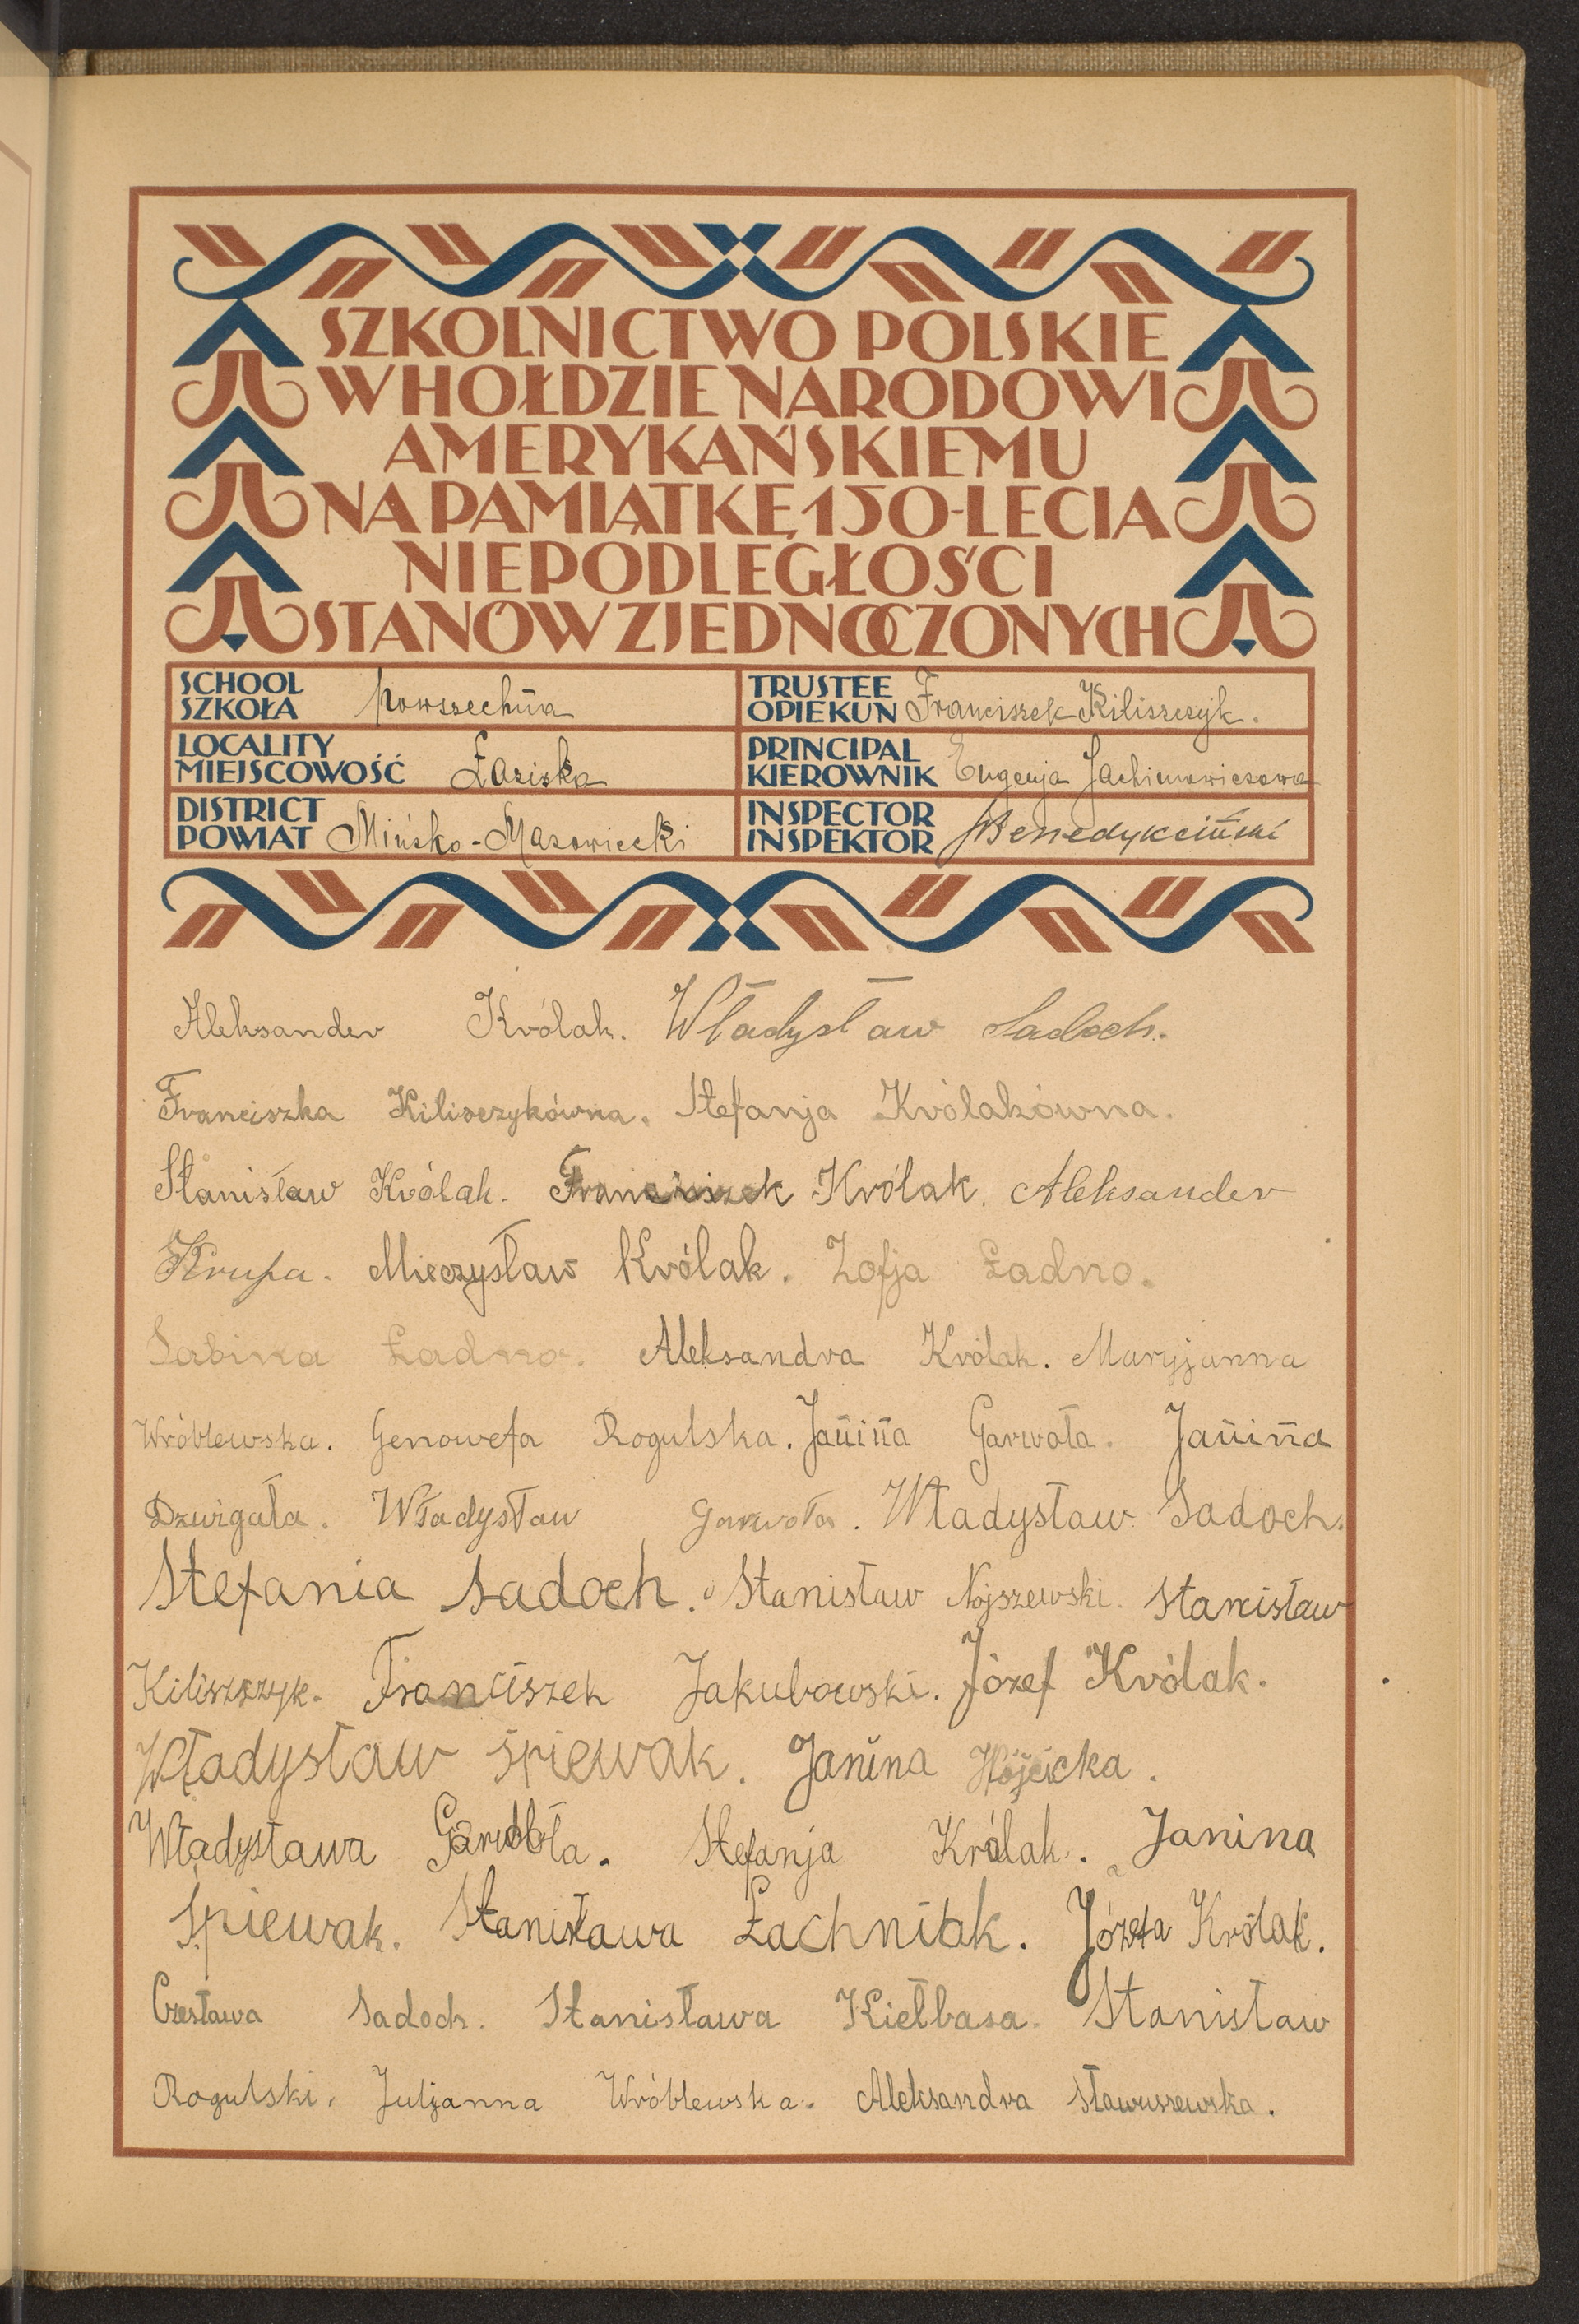 SZKOLNICTWO POLSKIE
W HOŁDZIE NARODOWI
AMERYKAŃSKIEMU
NA PAMIĄTKĘ 150-LECIA
NIEPODLEGŁOŚCI
STANÓW ZJEDNOCZONYCH
SCHOOL
SZKOŁA Powszechna
TRUSTEE
OPIEKUN Franciszek Kiliszczyk.
LOCALITY
MIEJSCOWOŚĆ Łaziska
PRINCIPAL
KIEROWNIK Eugenja Jachimowiczowa
DISTRICT
POWIAT Mińsko-Mazowiecki
INSPECTOR
INSPEKTOR Benedykciński
Aleksander Królak. Władysław Sadoch.
Franciszka Kiliszczykówna. Stefanja Królakówna.
Stanisław Królak. Franciszek Królak. Aleksander
Krupa. Mieczysław Królak. Zofja Ładno.
Sabina Ładno. Aleksandra Królak. Maryjanna
Wróblewska. Genowefa Rogulska. Janina Garwoła. Janina
Dzwigała. Władysław Garwoła. Władysław Sadoch.
Stefania Sadoch. Stanisław Nojszewski. Stanisław
Kiliszczyk. Franciszek Jakubowski. Józef Królak.
Władysław Śpiewak. Janina Wójcicka.
Władysława Garwoła. Stefanja Królak. Janina
Śpiewak. Stanisława Łachniak. Józefa Królak.
Czesława Sadoch. Stanisława Kiełbasa. Stanisław
Rogulski. Juljanna Wróblewska. Aleksandra Sławuszewska.